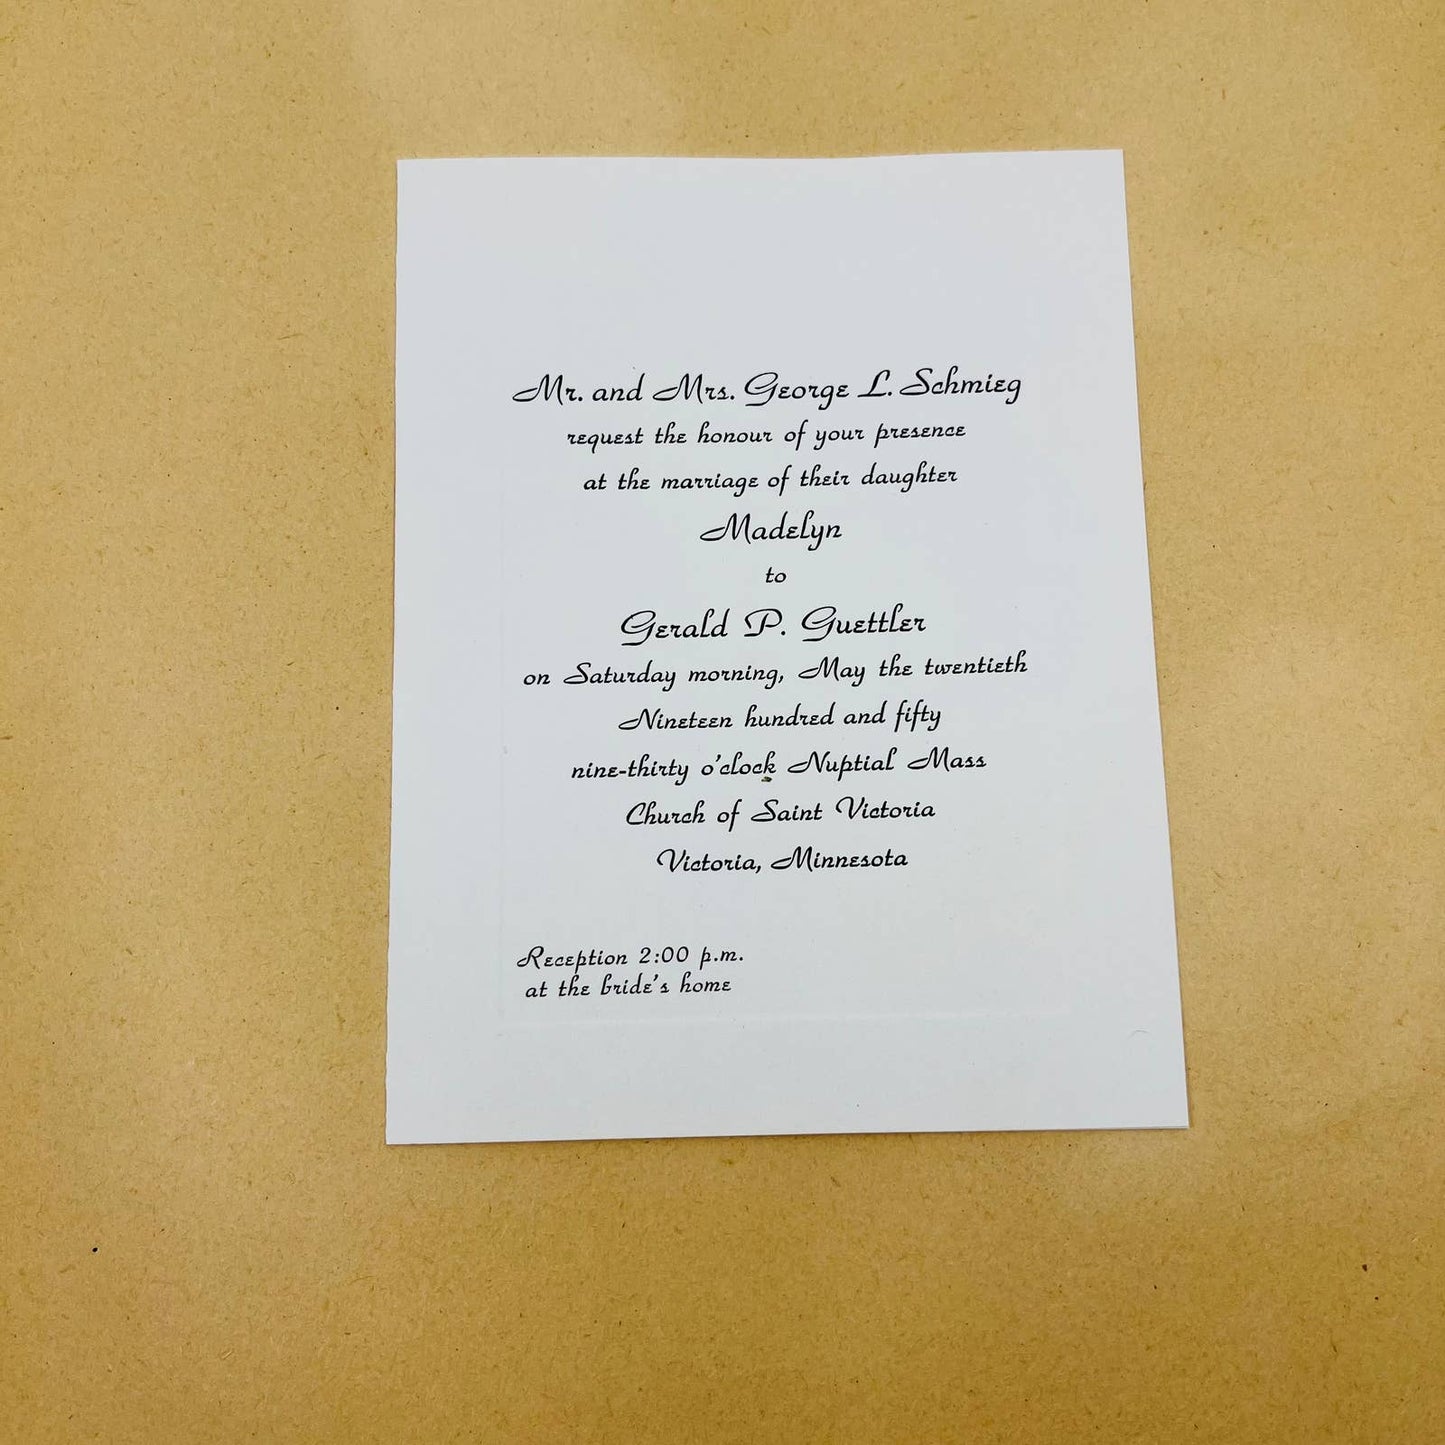 Mr. and Mrs. George L. Schmieg
request the honour of your presence
at the marriage of their daughter
Madelyn
to
Gerald P. Guettler
on Saturday morning, May the twentieth
Nineteen hundred and fifty
nine-thirty o'clock Nuptial Mass
Church of Saint Victoria
Victoria, Minnesota
Reception 2:00 p.m.
at the bride's home